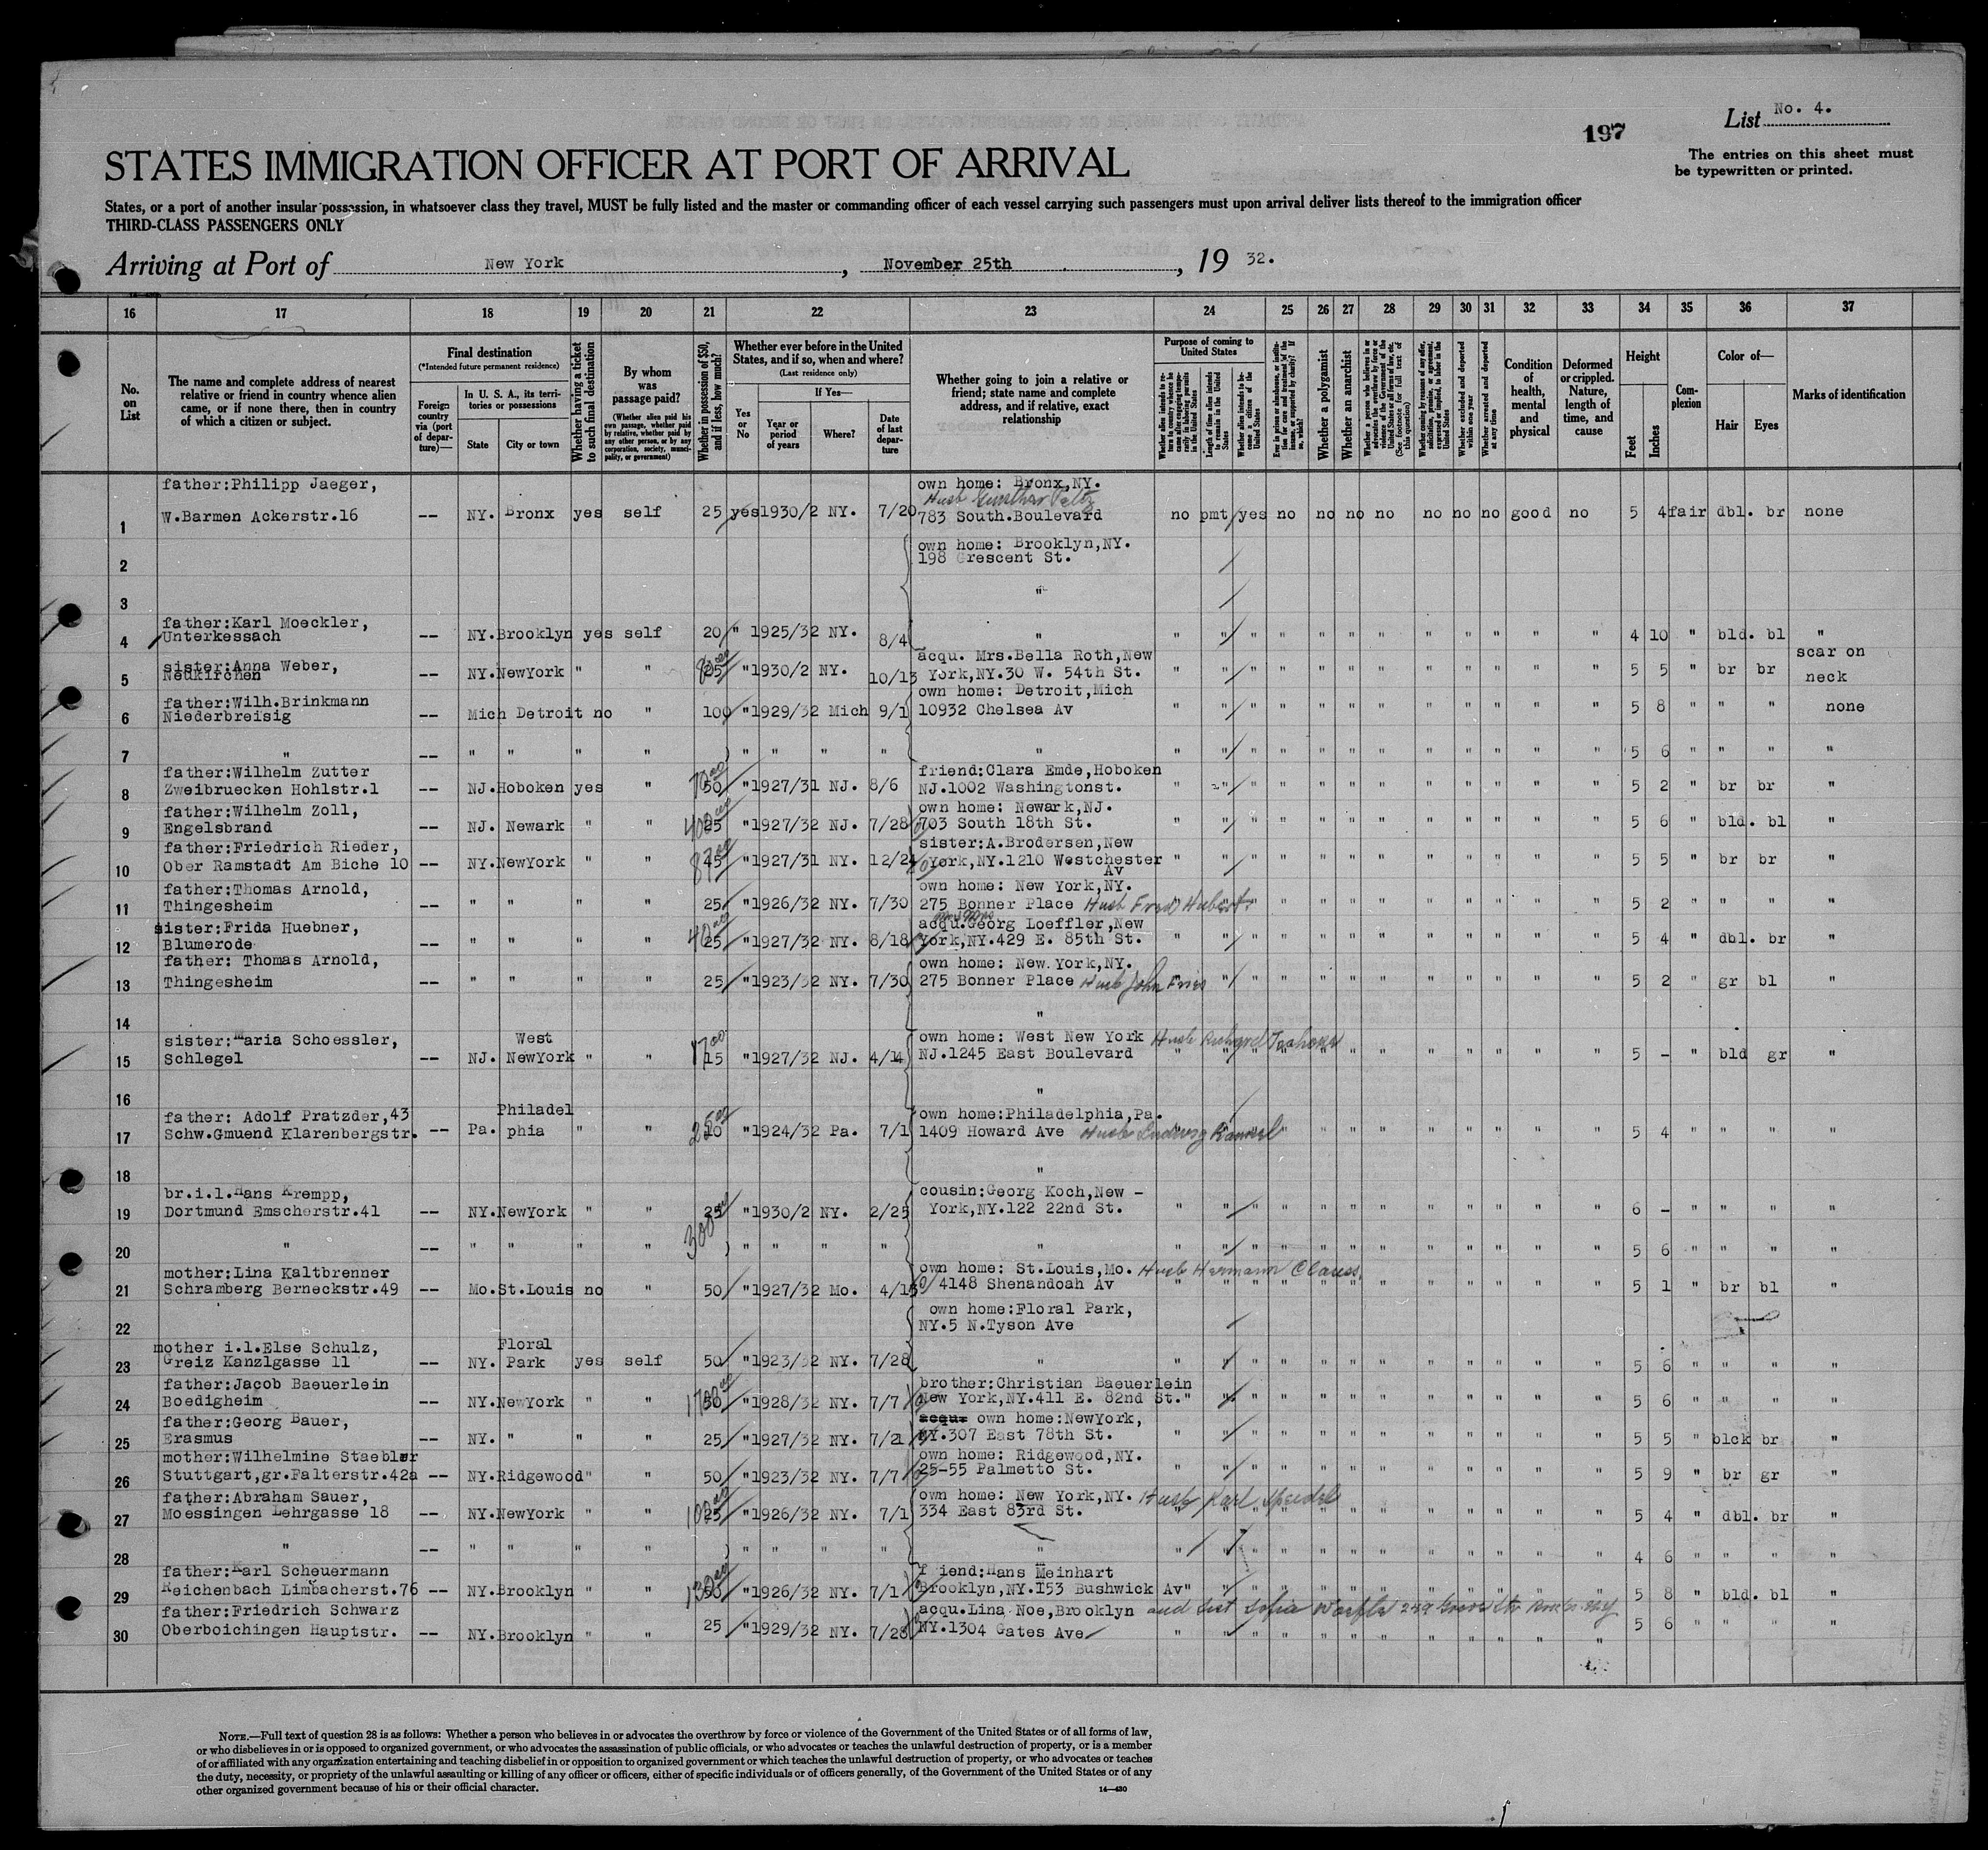 List No. 4.
197
The entries on this sheet must
be typewritten or printed.
STATES IMMIGRATION OFFICER AT PORT OF ARRIVAL
States, or a port of another insular possession, in whatsoever class they travel, MUST be fully listed and the master or commanding officer of each vessel carrying such passengers must upon arrival deliver lists thereof to the immigration officer
THIRD-CLASS PASSENGERS ONLY
Arriving at Port of New York, November 25th, 19 32.
16 17 18 19 20 21 22 23 24 25 26 27 28 29 30 31 32 33 34 35 36 37
No.
on
List
The name and complete address of nearest
relative or friend in country whence alien
came, or if none there, then in country
of which a citizen or subject.
Final destination
(*Intended future permanent residence)
Foreign
country
via (port
of depar-
ture)—
In U. S. A., its terri-
tories or possessions
State
City or town
Whether having a ticket
to such final destination
By whom
was
passage paid?
(Whether alien paid his
own passage, whether paid
by relative, whether paid by
any other person, or by any
corporation, society, munici-
pality, or government)
Whether in possession of $50,
and if less, how much?
Whether ever before in the United
States, and if so, when and where?
(Last residence only)
Yes
or
No
If Yes—
Year or
period
of years
Where?
Date
of last
depar-
ture
Whether going to join a relative or
friend; state name and complete
address, and if relative, exact
relationship
Purpose of coming to
United States
Whether a polygamist
Whether an anarchist
Whether excluded and deported
within one year
Whether arrested and deported
at any time
Condition
of
health,
mental
and
physical
Deformed
or crippled.
Nature,
length of
time, and
cause
Height
Feet
Inches
Com-
plexion
Color of—
Hair
Eyes
Marks of identification
father:Philipp Jaeger, own home: Bronx,NY.
1 W.Barmen Ackerstr.16 -- NY. Bronx yes self 25 yes 1930/2 NY. 7/20 783 South.Boulevard no pmt yes no no no no no no no good no 5 4 fair dbl. br none
own home: Brooklyn,NY.
2 198 Crescent St.
3 "
father:Karl Moeckler,
4 Unterkessach -- NY. Brooklyn yes self 20 " 1925/32 NY. 8/4 " " " " " " " " " " " " " 4 10 " bld. bl "
sister:Anna Weber, acqu. Mrs.Bella Roth,New scar on
5 Neukirchen -- NY. NewYork " " 25 " 1930/2 NY. 10/13 York,NY.30 W. 54th St. " " " " " " " " " " " " 5 5 " br br neck
father:Wilh.Brinkmann own home: Detroit,Mich
6 Niederbreisig -- Mich Detroit no " 100 " 1929/32 Mich 9/1 10932 Chelsea Av " " " " " " " " " " " " 5 8 " " " none
7 " -- " " " " " " " " " " " " " " " " " " " " " 5 6 " " " "
father:Wilhelm Zutter friend:Clara Emde,Hoboken
8 Zweibruecken Hohlstr.1 -- NJ. Hoboken yes " 50 " 1927/31 NJ. 8/6 NJ.1002 Washingtonst. " " " " " " " " " " " " 5 2 " br br "
father:Wilhelm Zoll, own home: Newark,NJ.
9 Engelsbrand -- NJ. Newark " " 25 " 1927/32 NJ. 7/28 703 South 18th St. " " " " " " " " " " " " 5 6 " bld. bl "
father:Friedrich Rieder, sister:A.Brodersen,New
10 Ober Ramstadt Am Biche 10 -- NY. NewYork " " 45 " 1927/31 NY. 12/24 York,NY.1210 Westchester Av " " " " " " " " " " " " 5 5 " br br "
father:Thomas Arnold, own home: New York,NY.
11 Thingesheim -- " " " " 25 " 1926/32 NY. 7/30 275 Bonner Place Husb Fred Hubert " " " " " " " " " " 5 2 " " " "
sister:Frida Huebner, acqu.Georg Loeffler,New
12 Blumerode -- " " " " 25 " 1927/32 NY. 8/18 York,NY.429 E. 85th St. " " " " " " " " " " " " 5 4 " dbl. br "
father: Thomas Arnold, own home: New York,NY.
13 Thingesheim -- " " " " 25 " 1923/32 NY. 7/30 275 Bonner Place Husb John Fries " " " " " " " " " " " 5 2 " gr bl "
14 "
sister:Maria Schoessler, West own home: West New York Husb Richard
15 Schlegel -- NJ. NewYork " " 15 " 1927/32 NJ. 4/14 NJ.1245 East Boulevard " " " " " " " " " " " " 5 - " bld gr "
16 "
father: Adolf Pratzder,43 Philadel own home:Philadelphia,Pa.
17 Schw.Gmuend Klarenbergstr. -- Pa. phia " " 10 " 1924/32 Pa. 7/1 1409 Howard Ave Husb Ludwig " " " " " " " " " " 5 4 " " " "
18 "
br.i.l.Hans Krempp, cousin:Georg Koch,New -
19 Dortmund Emscherstr.41 -- NY. NewYork " " 25 " 1930/2 NY. 2/25 York,NY.122 22nd St. " " " " " " " " " " " " 6 - " " " "
20 " -- " " " " 300 " " " " " " " " " " " " " " " " " 5 6 " " " "
mother:Lina Kaltbrenner own home: St.Louis,Mo. Husb Hermann Clauss.
21 Schramberg Berneckstr.49 -- Mo. St.Louis no " 50 " 1927/32 Mo. 4/15 4148 Shenandoah Av " " " " " " " " " " " " 5 1 " br bl "
own home:Floral Park,
22 NY.5 N.Tyson Ave
mother i.l.Else Schulz, Floral
23 Greiz Kanzlgasse 11 -- NY. Park yes self 50 " 1923/32 NY. 7/28 " " " " " " " " " " " " " 5 6 " " " "
father:Jacob Baeuerlein brother:Christian Baeuerlein
24 Boedigheim -- NY. NewYork " " 50 " 1928/32 NY. 7/7 New York,NY.411 E. 82nd St. " " " " " " " " " " " " 5 6 " " " "
father:Georg Bauer, acqu. own home:NewYork,
25 Erasmus -- NY. " " " 25 " 1927/32 NY. 7/21 NY.307 East 78th St. " " " " " " " " " " " " 5 5 " blck br "
mother:Wilhelmine Staebler own home: Ridgewood,NY.
26 Stuttgart,gr.Falterstr.42a -- NY. Ridgewood " " 50 " 1923/32 NY. 7/7 25-55 Palmetto St. " " " " " " " " " " " " 5 9 " br gr "
father:Abraham Sauer, own home: New York,NY. Husb Karl
27 Moessingen Lehrgasse 18 -- NY. NewYork " " 25 " 1926/32 NY. 7/1 334 East 83rd St. " " " " " " " " " " " " 5 4 " dbl. br "
28 " -- " " " " " " " " " " " " " " " " " " " " " 4 6 " " " "
father:Karl Scheuermann friend:Hans Meinhart
29 Reichenbach Limbacherst.76 -- NY. Brooklyn " " 50 " 1926/32 NY. 7/1 Brooklyn,NY.153 Bushwick Av " " " " " " " " " " " " 5 8 " bld. bl "
father:Friedrich Schwarz acqu.Lina Noe,Brooklyn and sist Sofia
30 Oberboichingen Hauptstr. -- NY. Brooklyn " " 25 " 1929/32 NY. 7/28 NY.1304 Gates Ave " " " " " " " " " " " " 5 6 " " " "
NOTE.—Full text of question 28 is as follows: Whether a person who believes in or advocates the overthrow by force or violence of the Government of the United States or of all forms of law,
or who disbelieves in or is opposed to organized government, or who advocates the assassination of public officials, or who advocates or teaches the unlawful destruction of property, or is a member
of or affiliated with any organization entertaining and teaching disbelief in or opposition to organized government or which teaches the unlawful destruction of property, or who advocates or teaches
the duty, necessity, or propriety of the unlawful assaulting or killing of any officer or officers, either of specific individuals or of officers generally, of the Government of the United States or of any
other organized government because of his or their official character.
14—430